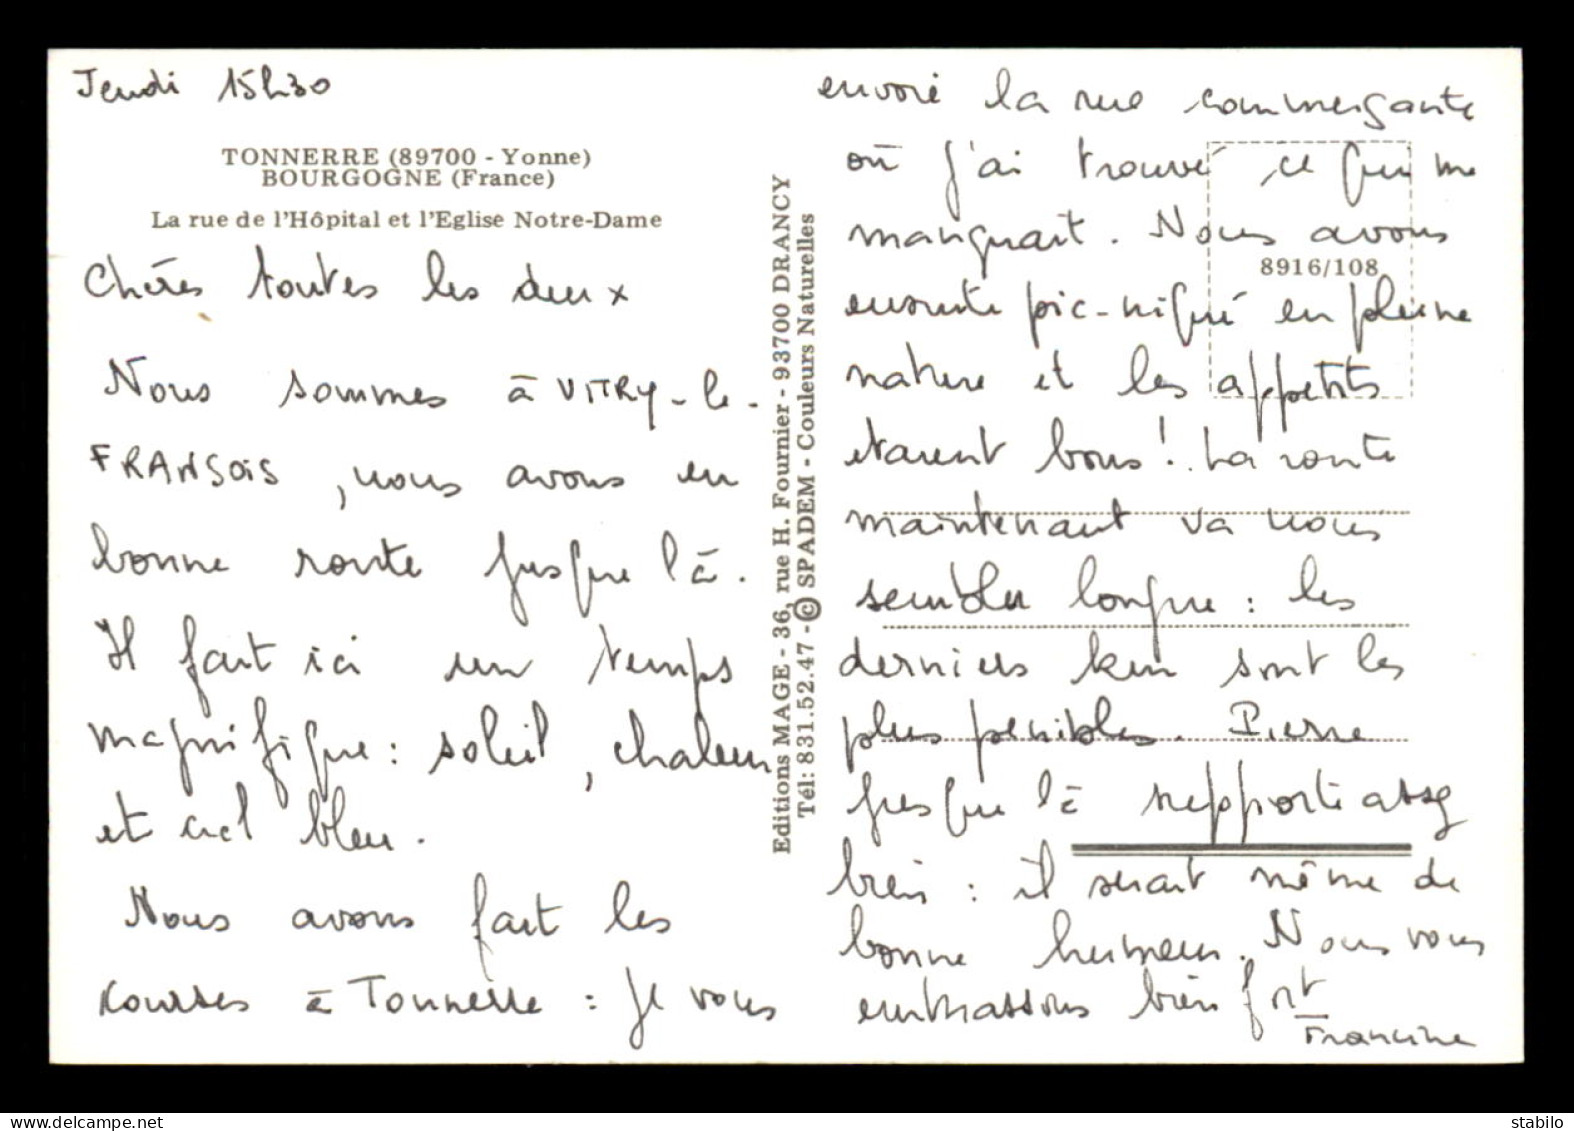 Jeudi 15h30
TONNERRE (89700 - Yonne)
BOURGOGNE (France)
La rue de l'Hôpital et l'Eglise Notre-Dame
Chères toutes les deux
Nous sommes à VITRY-le-
FRANSOIS, nous avons eu
bonne route jusque là.
Il fait ici un temps
magnifique : soleil, chaleur
et ciel bleu.
Nous avons fait les
courses à Tonnerre : je vous
Editions MAGE - 36, rue H. Fournier - 93700 DRANCY
Tél: 831.52.47 - © SPADEM - Couleurs Naturelles
envoie la rue commerçante
où j'ai trouvé ce qui me
manquait. Nous avons
8916/108
ensuite pic-niqué en pleine
nature et les appetits
etaient bons! La route
maintenant va nous
sembler longue : les
derniers km sont les
plus penibles. Pierre
jusque là supporte assez
bien : il serait même de
bonne humeur. Nous vous
embrassons bien fort
Francine
stabilo